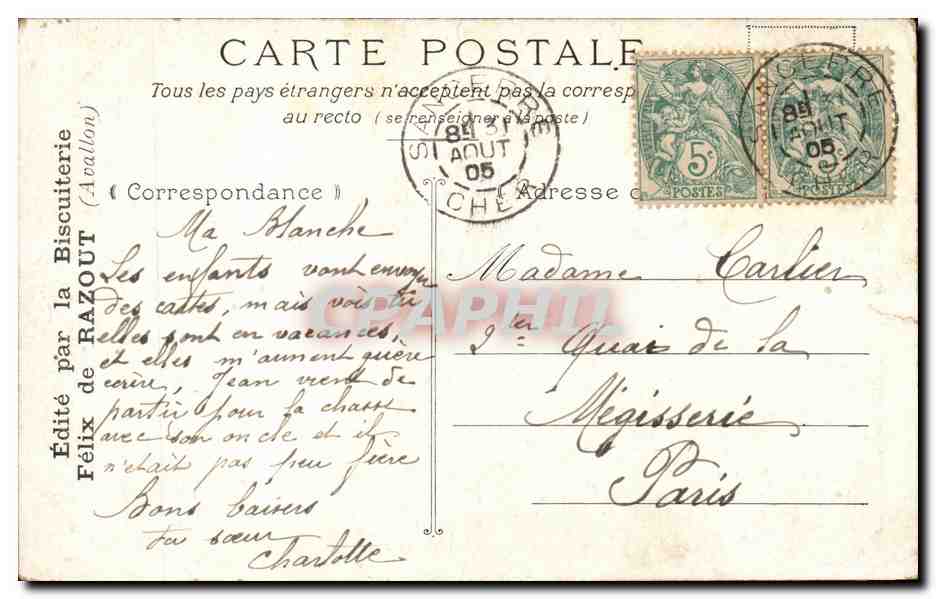 CARTE POSTALE
Tous les pays étrangers n'acceptent pas la corresp
au recto (se renseigner à la poste)
SANCERRE
8E 31
AOUT
05
CHER
SANCERRE
8E
AOUT
05
5c
POSTES
POSTES
Édité par la Biscuiterie
Félix de RAZOUT (Avallon)
Correspondance
Adresse
Ma Blanche
Les enfants vont envoyer
des cartes, mais vois tu
elles sont en vacances,
et elles m'aiment guère
écrire, Jean vient de
partir pour la chasse
avec son oncle et il
n'était pas peu fière
Bons baisers
ta sœur
Charlotte
Madame Carlier
2ter Quai de la
Mégisserie
Paris
CPAPHIL